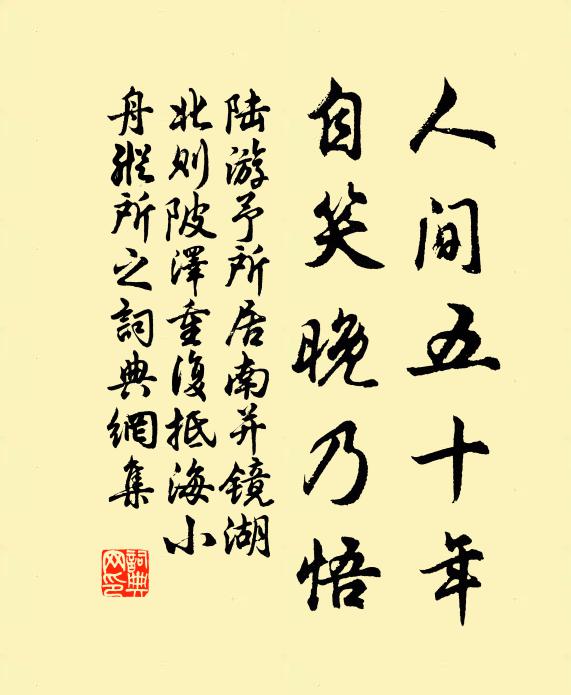 人间五十年
自笑晚乃悟
陆游予所居南并镜湖
北则陂泽重复抵海小
舟纵所之词典网集
词典
网印